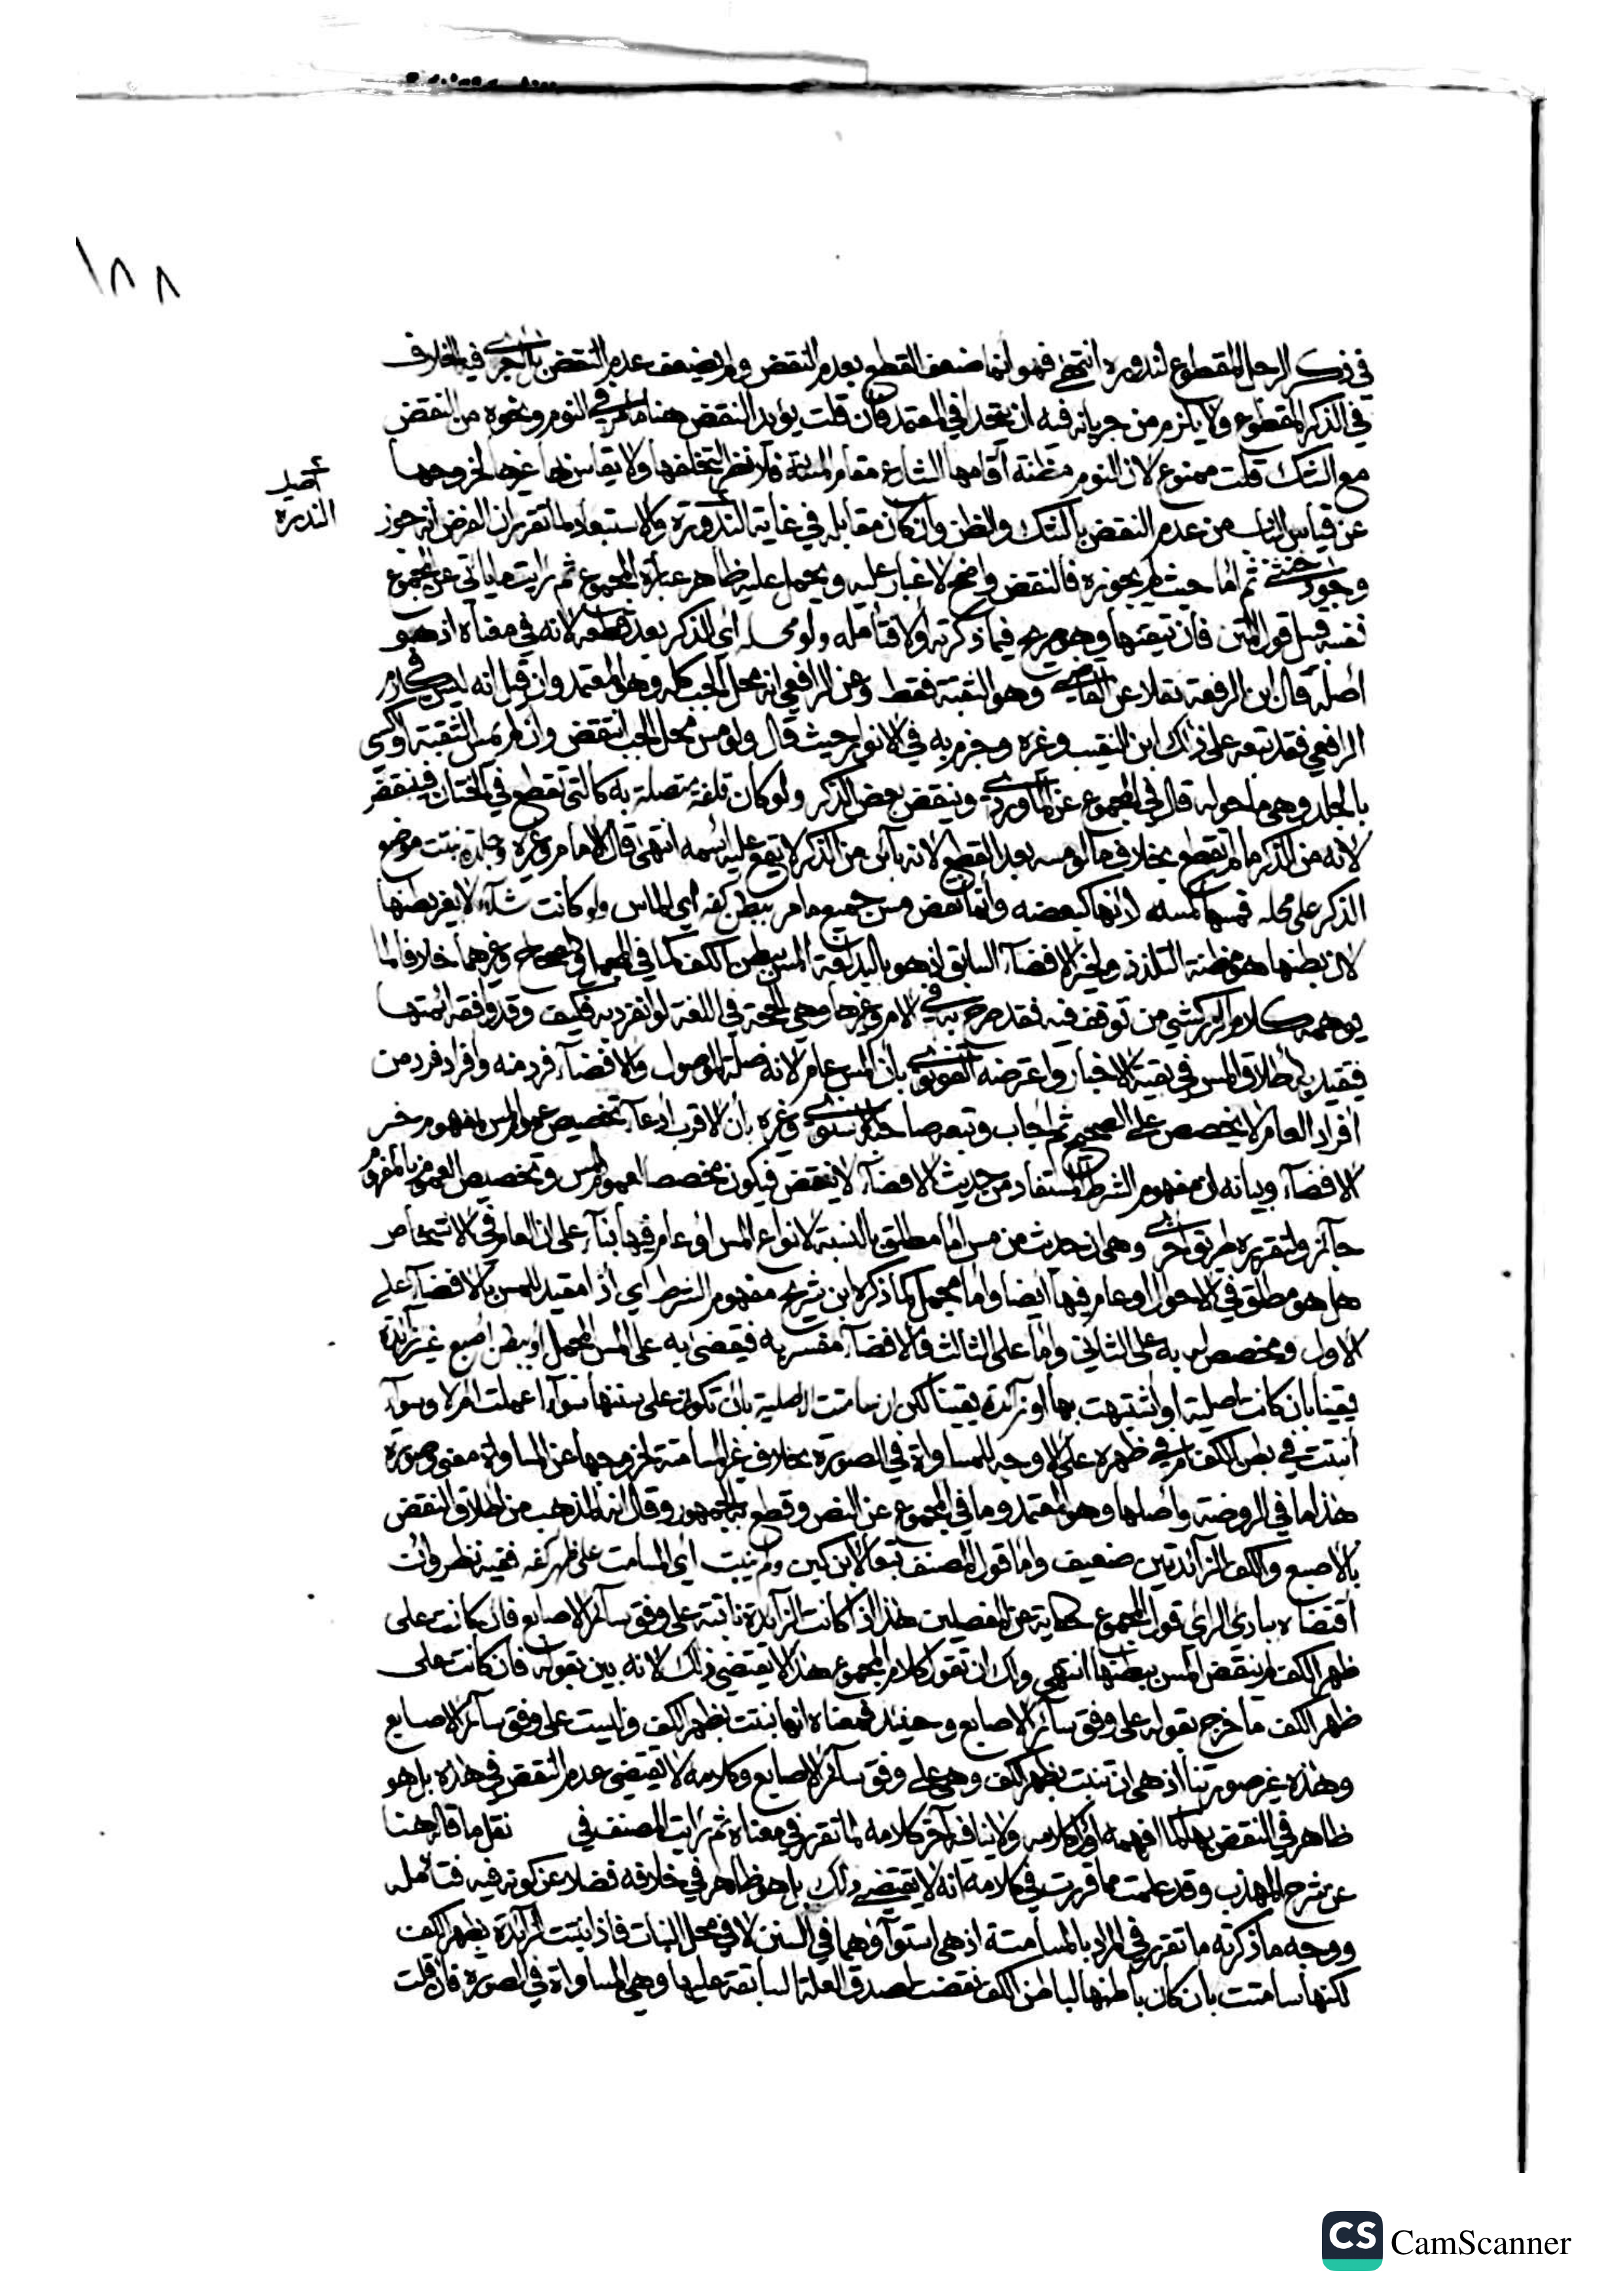 ١٨٨
في ذكر الرجل المقطوع لندوره انتهى فهو إنما ضعف القطع بعدم النقض ولم يضعف عدم النقض بل أجرى فيه الخلاف
في الذكر المقطوع ولا يلزم من جريانه فيه أن يتحدا في المعتمد فإن قلت يؤيد النقض هنا ما مر في النوم ونحوه من النقض
مع الشك قلت ممنوع لأن النوم مظنة أقامها الشارع مقام المئنة فلا نظر لتخلفها ولا يقاس بها غيرها لخروجها
أصيل
الندرة
عن قياس الباب من عدم النقض بالشك والظن وإن كان مقابله في غاية الندورة ولا استبعاد لما تقرر أن الفرض أنه جوز
وجود خنثى ثم أما حيث لم يجوزه فالنقض واضح لا غبار عليه ويحمل عليه ظاهر عبارة المجموع ثم رأيت ما يأتي عن المجموع
نفسه قبيل قول المتن فإن تيقنها وهو صريح فيما ذكرته أولا فتأمله ولو محله أي الذكر بعد قطعه لأنه في معناه إذ هو
أصله قال ابن الرفعة نقلا عن القاضي وهو الثقبة فقط وعن الرافعي أنه محل الجب كله وهو المعتمد وإن قيل أنه ليس في كلام
الرافعي فقد تبعه على ذلك ابن النقيب وغيره وجزم به في الأنوار حيث قال ولو مس محل الجب انتقض وإن لم يمس الثقبة أو اكتسى
بالجلد وهي ما حوله قال في المجموع عن الماوردي وينقض بعض الذكر ولو كان قلفة متصلة به كالتي تقطع في الختان فينقض
لأنه من الذكر ما لم تقطع بخلاف ما لو مسه بعد القطع لأنه بائن من الذكر لا يقع عليه اسمه انتهى قال الإمام وغيره وجلدة نبتت موضع
الذكر على محله فمسها كمسه لأنها كبعضه وإنما نقض مس جميع ما مر ببطن كفه أي الماس ولو كانت شلاء لا بغير بطنها
لأن بطنها هو مظنة التلذذ ولخبر الإفضاء السابق إذ هو باليد لغة المس ببطن الكف كما في المجمل والصحاح وغيرهما خلافا لما
يوهمه كلام الزركشي من توقف فيه فقد صرح به في الأم وغيرها وهي الحجة في اللغة لو انفرد به فكيف وقد وافقه أئمتها
فيقيد به إطلاق المس في بقية الأخبار واعترضه القونوي بأن المس عام لأنه صلة الموصول والإفضاء فرد منه وإفراد فرد من
أفراد العام لا يخصص على الصحيح ثم أجاب وتبعه صاحبه الإسنوي وغيره بأن الأقرب ادعاء تخصيص عموم المس بمفهوم خبر
الإفضاء وبيانه أن مفهوم الشرط المستفاد من حديث الإفضاء لا ينقض فيكون مخصصا لعموم المس وتخصيص العموم بالمفهوم
جائز ولتقريره طريق أخرى وهي أن حديث من مس إما مطلق بالنسبة لأنواع المس أو عام فيها بناء على أن العام في الأشخاص
هل هو مطلق في الأحوال أو عام فيها أيضا وإما مجمل كما ذكره ابن سريج مفهوم الشرط أي إذا مقيد للمس بالإفضاء على
الأول ومخصص له به على الثاني وأما على الثالث فالإفضاء مفسر به فيقضى به على المس المجمل أو ببطن أصبع غير زائدة
يقينا بأن كانت أصلية أو اشتبهت بها أو زائدة يقينا لكن إن سامتت الأصلية بأن تكون على سننها سواء أعملت أم لا وسواء
أنبتت في بطن الكف أم في ظهره على الأوجه للمساواة في الصورة بخلاف غير المسامتة لخروجها عن المساواة معنى وصورة
هذا ما في الروضة وأصلها وهو المعتمد وما في المجموع عن النص وقطع به الجمهور وقال إنه المذهب من إطلاق النقض
بالأصبع والكف الزائدتين ضعيف وأما قول المصنف تبعا لابن كبن ولم ينبت أي المسامت على ظهر كفه ففيه نظر وإن
اقتضاه بادي الرأي قول المجموع حكاية عن المفصلين هذا إذا كانت الزائدة نابتة على وفق سائر الأصابع فإن كانت على
ظهر الكف لم ينقض المس ببطنها انتهى ولك أن تقول كلام المجموع هذا لا يقتضي ذلك لأنه بين بقوله فإن كانت على
ظهر الكف ما خرج بقوله على وفق سائر الأصابع وحينئذ فمعناه أنها نبتت بظهر الكف وليست على وفق سائر الأصابع
وهذه غير صورتنا إذ هي أن تنبت بظهر الكف وهي على وفق سائر الأصابع وكلامه لا يقتضي عدم النقض في هذه بل هو
ظاهر في النقض بها كما أفهمه أول كلامه ولا ينافيه آخر كلامه لما تقرر في معناه ثم رأيت المصنف في نقل ما قاله هنا
عن شرح المهذب وقد علمت مما قررت في كلامه أنه لا يقتضي ذلك بل هو ظاهر في خلافه فضلا عن كونه فيه فتأمله
ووجه ما ذكرته ما تقرر في المراد بالمسامتة إذ هي استواؤهما في السنن لا في محل النبات فإذا نبتت الزائدة بظهر الكف
لكنها سامتت بأن كان باطنها لباطن الكف نقضت لصدق العلة السابقة عليها وهي المساواة في الصورة فإن قلت
CS CamScanner